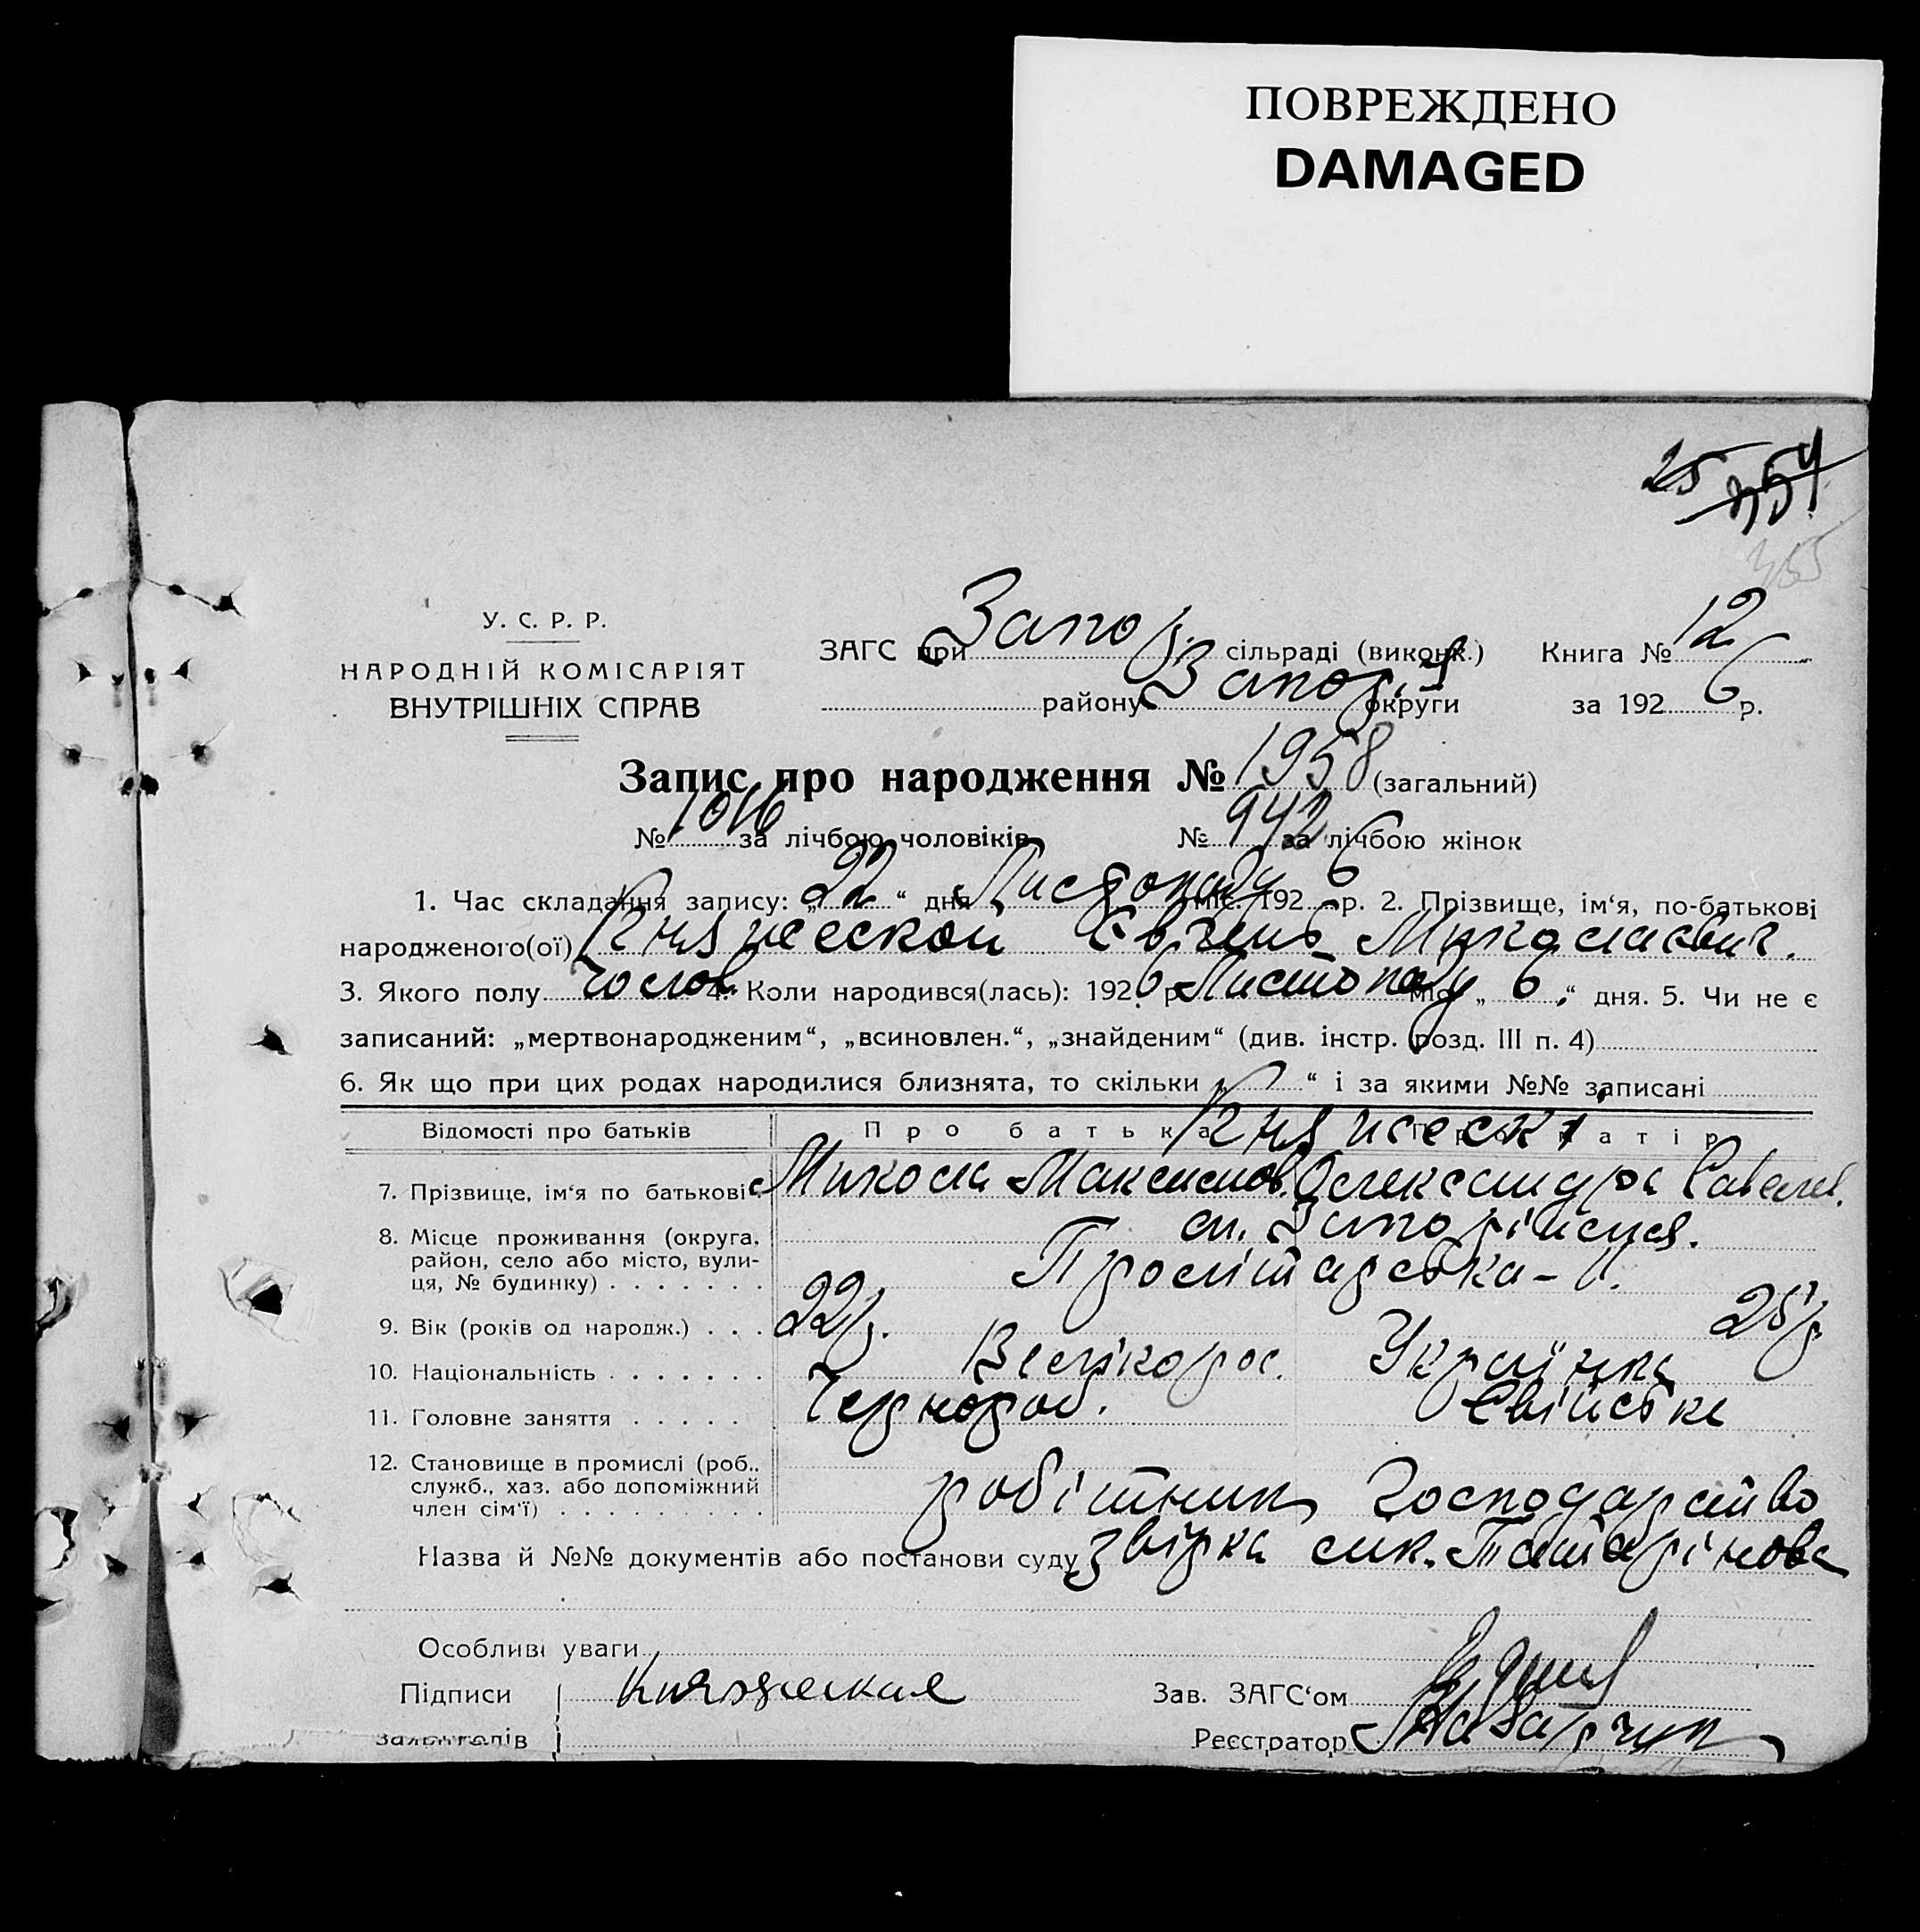 ПОВРЕЖДЕНО
DAMAGED
25
354
355
У. С. Р. Р.
НАРОДНІЙ КОМІСАРІЯТ
ВНУТРІШНІХ СПРАВ
ЗАГС при Запор. сільраді (виконк.) Книга № 12
району Запоріз. округи за 1926 р.
Запис про народження № 1958 (загальний)
№ 1016 за лічбою чоловіків № 942 за лічбою жінок
1. Час складання запису: „22“ дня Листопаду міс. 1926 р. 2. Прізвище, ім'я, по-батькові
народженого(ої) Княжеской Евгень Миколаевич.
3. Якого полу Чолов. 4. Коли народився(лась): 1926 р. Листопаду міс. „6“ дня. 5. Чи не є
записаний: „мертвонародженим“, „всиновлен.“, „знайденим“ (див. інстр. розд. III п. 4)
6. Як що при цих родах народилися близнята, то скільки „ “ і за якими №№ записані
Відомості про батьків Про батька Про матір
Княжескі
7. Прізвище, ім'я по батькові Микола Максимов. Олександра Савел.
8. Місце проживання (округа, район, село або місто, вулиця, № будинку) м. Запоріжжя.
Пролітарська-
9. Вік (років од народж.) 22 р. 25 р
10. Національність Велікорос. Українка
11. Головне заняття Чорнороб. Свійське
12. Становище в промислі (роб., служб., хаз. або допоміжний член сім'ї) робітник Господарство
Назва й №№ документів або постанови суду звірка слк. Татарінова
Особливі уваги
Підписи Княжеская Зав. ЗАГС'ом
заявителів Реєстратор Назарчук